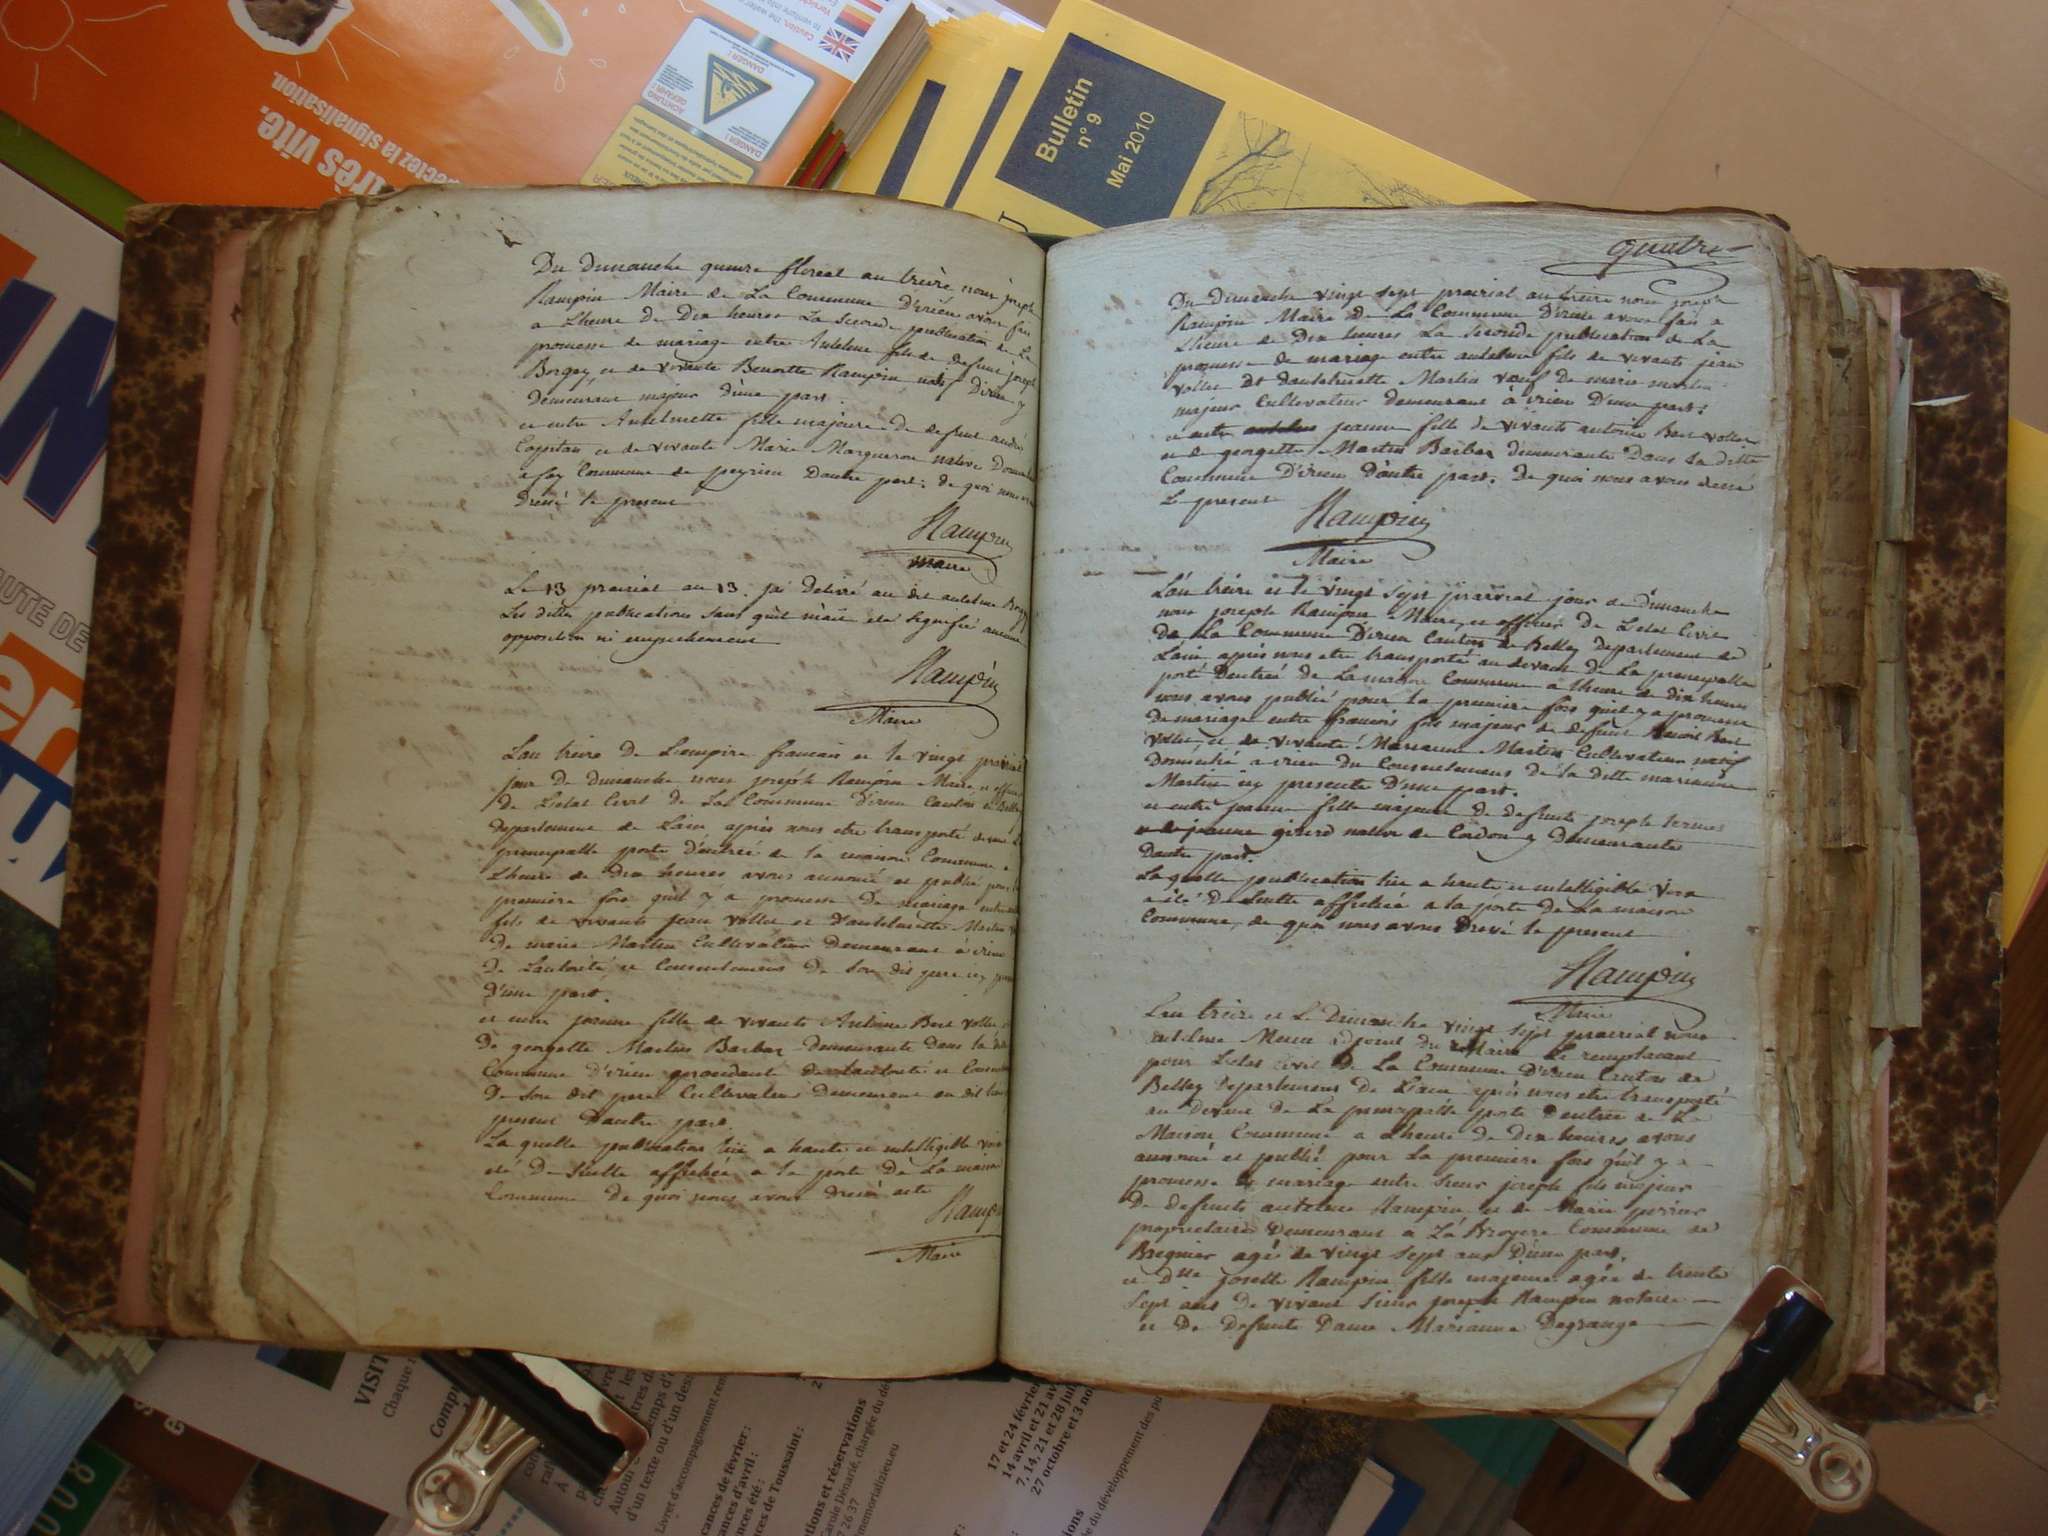 rès vite.
ectez la signalisation.
Caution, the water
to venture into
ACHTUNG
GEFAHR !
DANGER !
DANGER !
Bulletin
n° 9
Mai 2010
AUTE DE
Du dimanche quinze floreal an treize nous joseph
Rampin Maire de La Commune D'irieu avons fait
a Lheure de Dix heures La seconde publication de La
promesse de mariage entre Antelme fils de defunt joseph
Borgey et de vivante Benoitte Rampin natif Dirieu y
demeurant majeur d'une part.
et entre Antelmette fille majeure de defunt andré
Capitan et de vivante Marie Margueron native
a fay Commune de peyrieu Dautre part. de quoi nous
Dressé le present
Rampin
maire
Le 13 prairial an 13. jai delivré au dit antelme Borgey
Les dittes publications sans quil m'ait été signifié aucune
opposition ni empechement
Rampin
Maire
Lan treize de Lempire francais et le vingt prairial
jour de dimanche nous joseph Rampin Maire et
de Letat Civil de La Commune D'irieu Canton de
departement de Lain, après nous etre transporté devant
principalle porte d'entrée de la maison Commune a
Lheure de Dix heures avons annoncé et publié pour la
premiere fois quil y a promesse de mariage entre
fils de vivants jean vollet et dantelmette Martin
De marie Martin Cultivateur Demeurant à irieu
De Lautorité et Consentement de son dit pere icy
D'une part.
et entre jeanne fille de vivants Antoine Bert vollet
De georgette Martin Barbaz demeurante dans la
Commune d'irieu procedant de Lautorité et
De son dit pere Cultivateur demeurant au dit lieu
present Dautre part.
La quelle publication lüe a haute et intelligible voix
été De Suitte affichée a la porte de La maison
Commune de quoi nous avons dressé acte
Maire
quatre
Du Dimanche vingt sept prairial an treize nous joseph
Rampin Maire de La Commune D'irieu avons fait a
Lheure de Dix heures La seconde publication de La
promesse de mariage entre antelme fils de vivants jean
vollet et dantelmette Martin veuf de marie martin
majeur Cultivateur demeurant à irieu D'une part.
et entre jeanne fille de vivants antoine Bert vollet
et de georgette Martin Barbaz demeurante Dans la ditte
Commune D'irieu D'autre part. De quoi nous avons dressé
Le present
Rampin
Maire
L'an treize et le vingt sept prairial jour de dimanche
nous joseph Rampin Maire et officier de Letat Civil
De La Commune D'irieu Canton de Belley departement de
Lain après nous etre transporté au devant de La principalle
porte dentrée de La maison Commune a Lheure de dix heures
nous avons publié pour la premiere fois quil y a promesse
De mariage entre francois fils majeur de defunt Benoit Bert
vollet et de vivante Marianne Martin Cultivateur natif
Domicilié a irieu du Consentement de la ditte marianne
Martin icy presente D'une part.
et entre jeanne fille majeure de defunts joseph
et de jeanne girerd native de Cordon y Demeurante
Dautre part.
La quelle publication lüe a haute et intelligible voix
a été De Suitte affichée a la porte de La maison
Commune, de quoi nous avons Dressé le present
Rampin
Maire
Lan treize et Le Dimanche vingt sept prairial nous
antelme adjoint du Maire Le remplacant
pour Letat civil de La Commune D'irieu Canton de
Belley Departement de Lain après nous etre transporté
au devant de La principalle porte dentrée de La
Maison Commune a Lheure de Dix heures avons
annoncé et publié pour La premiere fois quil y a
promesse de mariage entre Sieur joseph fils majeur
De defunts antelme Rampin et de Marie perrier
proprietaire Demeurant a La Bruyere Commune de
Bregnier agé de vingt sept ans D'une part.
et Dlle josette Rampin fille majeure agée de trente
Sept ans de vivant Sieur joseph Rampin notaire
et De Defunte Dame Marianne Degrange
VISIT
Chaque
cances de février :
ances d'avril :
nces été :
ces de Toussaint :
Livret d'accompagnement
d'un texte ou d'un
tions et réservations
Carole Dénarié, chargée du
7 26 37
memorializieu.eu
17 et 24 février
14 avril et 21
7, 14, 21 et 28
27 octobre et 3
e du développement des